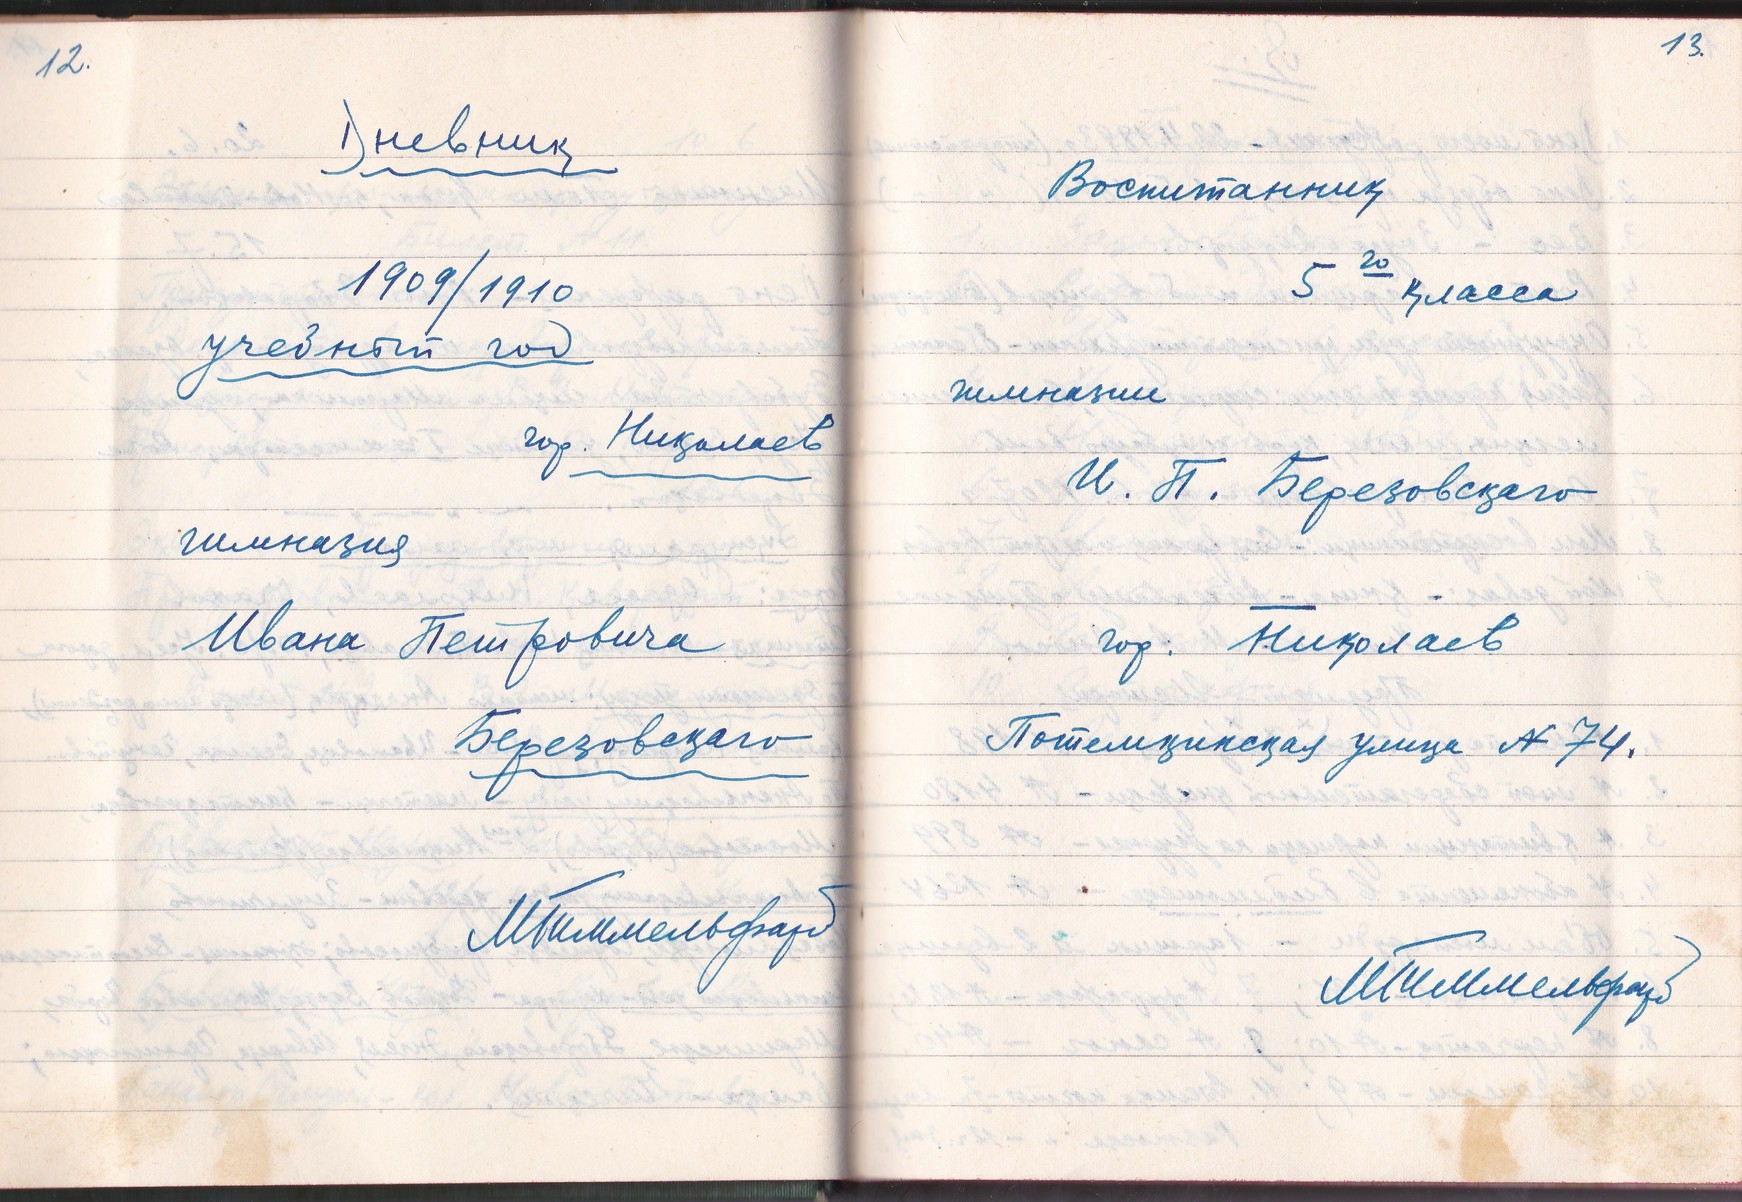 12.
Дневник
1909/1910
учебный год
гор. Николаев
гимназия
Ивана Петровича
Березовскаго
13.
Воспитанник
5го класса
гимназии
И. П. Березовскаго
гор. Николаев
Потемкинская улица № 74.